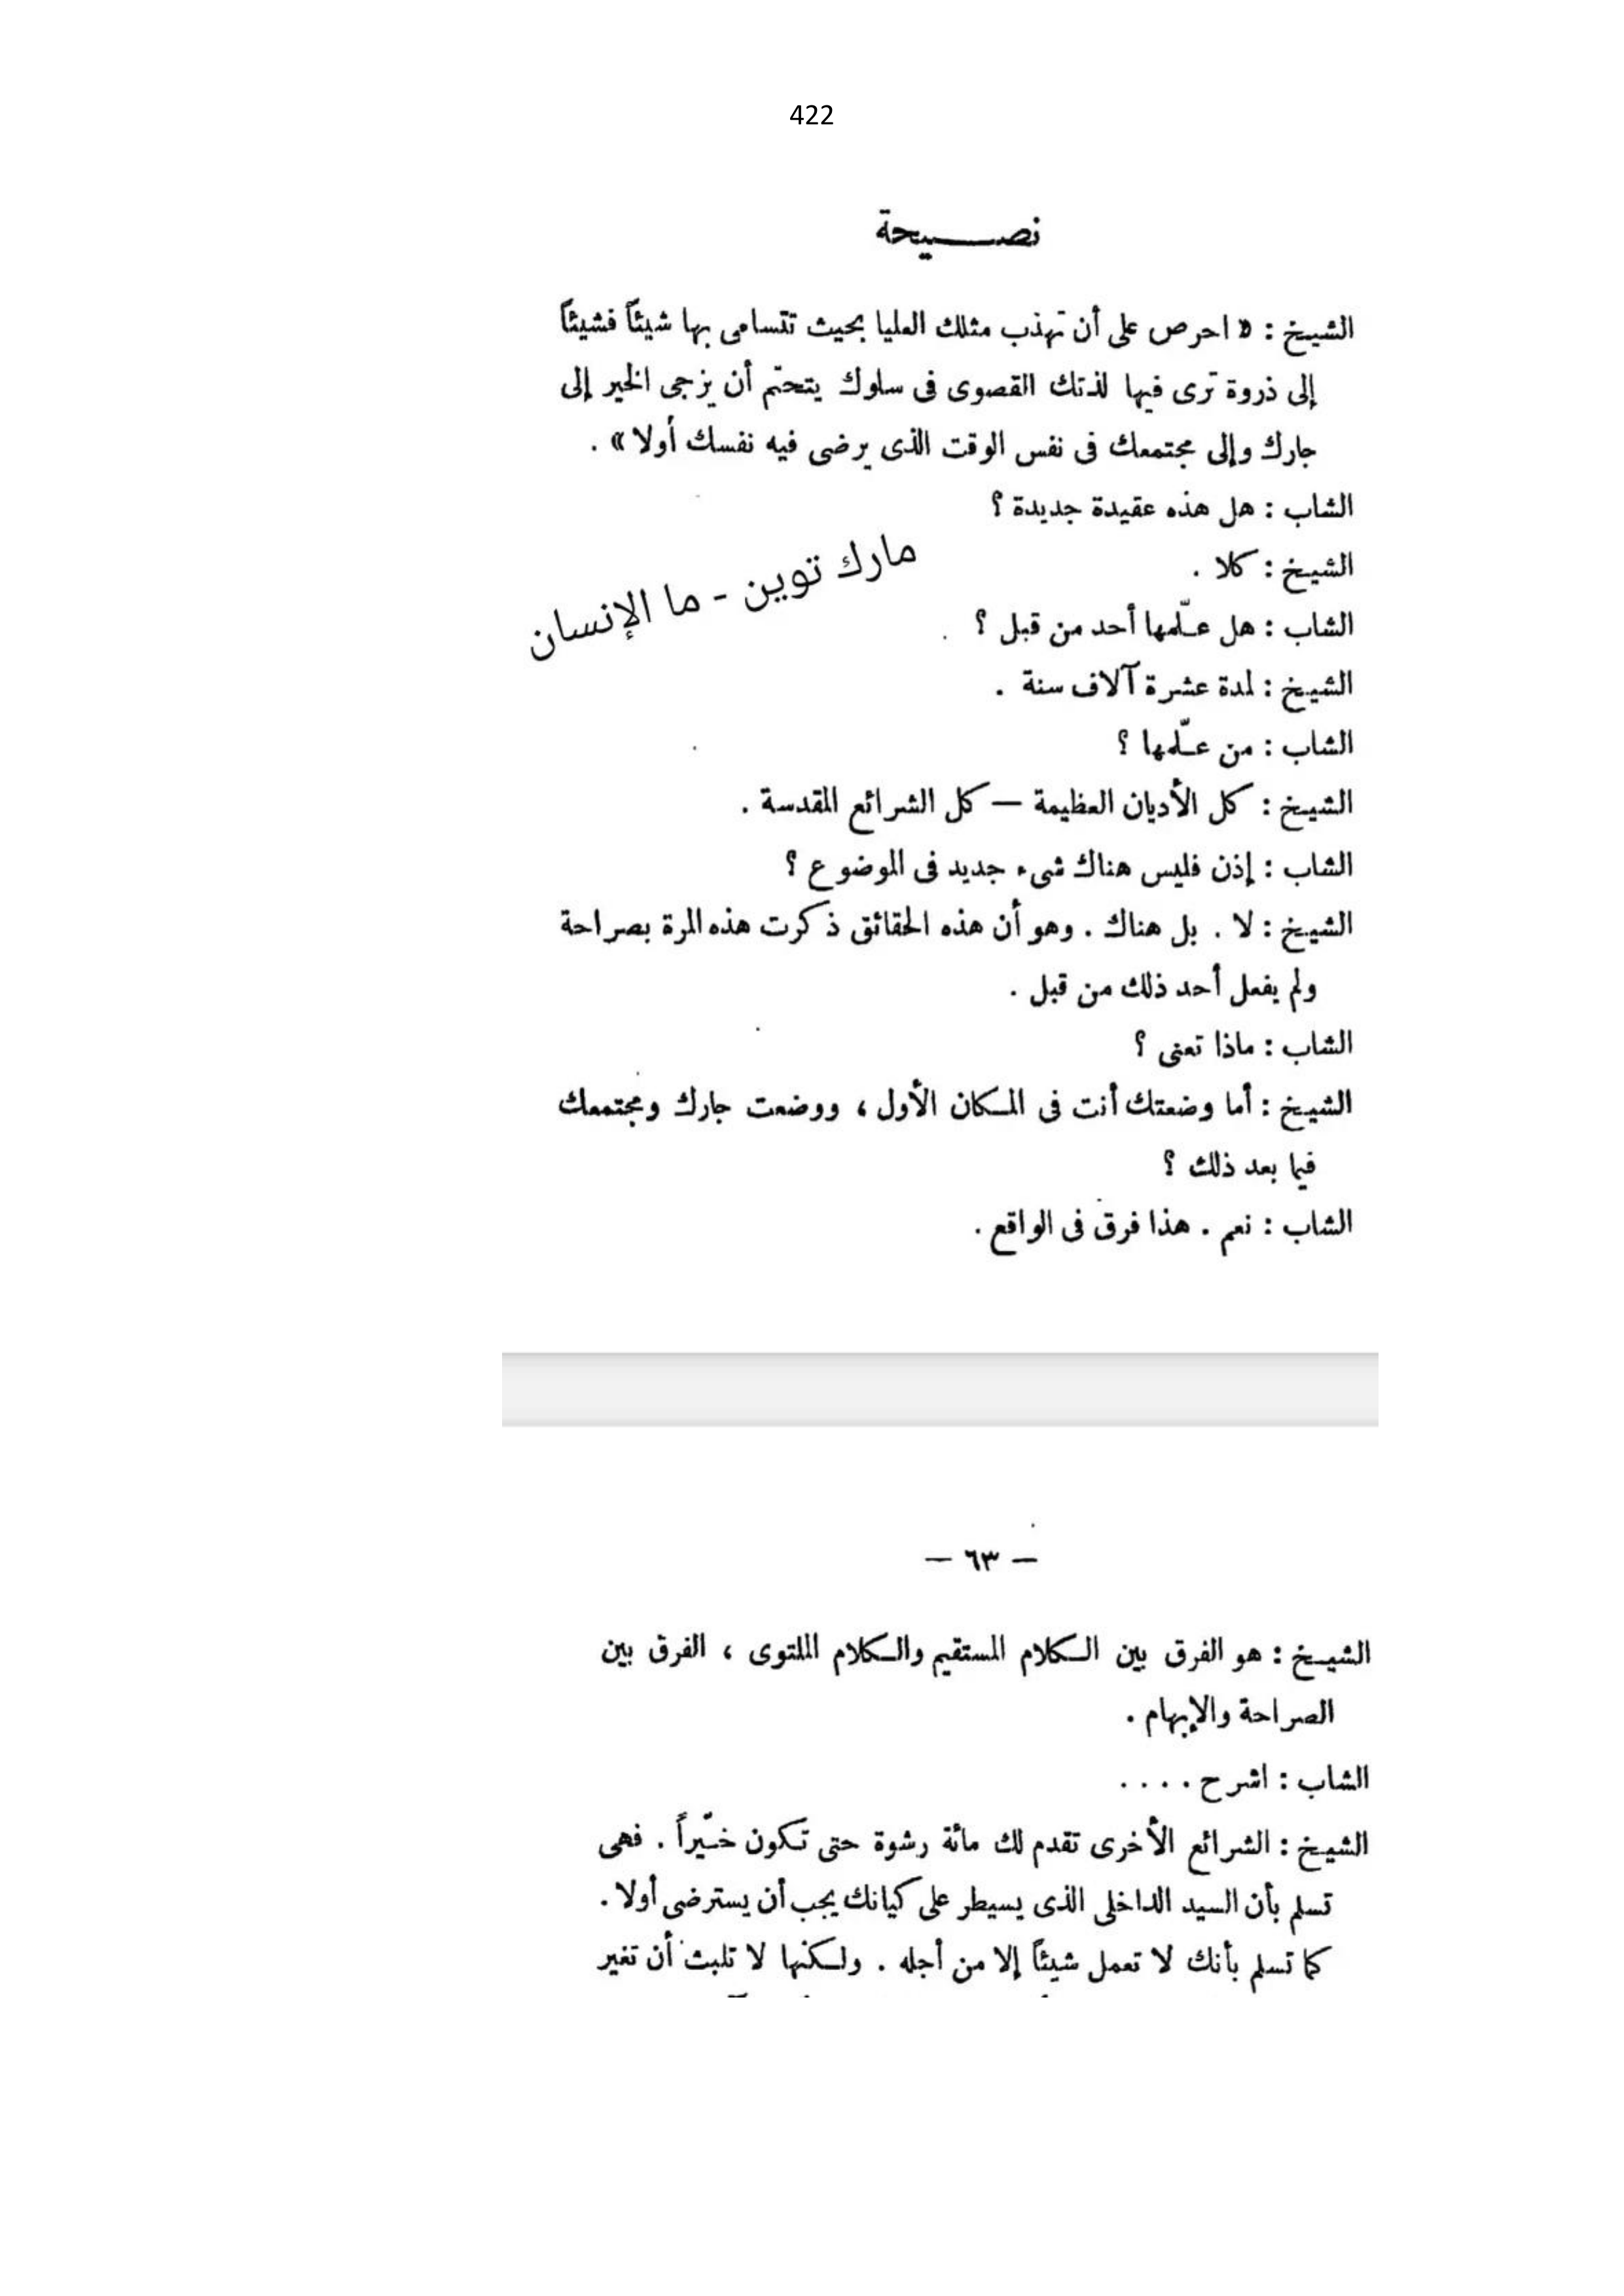 422
نصيحة
الشيخ : « احرص على أن تهذب مثلك العليا بحيث تتسامى بها شيئاً فشيئاً
إلى ذروة ترى فيها لذتك القصوى فى سلوك يتحتّم أن يزجى الخير إلى
جارك وإلى مجتمعك فى نفس الوقت الذى يرضى فيه نفسك أولا » .
الشاب : هل هذه عقيدة جديدة ؟
الشيخ : كلا .
مارك توين - ما الإنسان
الشاب : هل علّمها أحد من قبل ؟
الشيخ : لمدة عشرة آلاف سنة .
الشاب : من علّمها ؟
الشيخ : كل الأديان العظيمة — كل الشرائع المقدسة .
الشاب : إذن فليس هناك شىء جديد فى الموضوع ؟
الشيخ : لا . بل هناك . وهو أن هذه الحقائق ذكرت هذه المرة بصراحة
ولم يفعل أحد ذلك من قبل .
الشاب : ماذا تعنى ؟
الشيخ : أما وضعتك أنت فى المكان الأول ، ووضعت جارك ومجتمعك
فيما بعد ذلك ؟
الشاب : نعم . هذا فرق فى الواقع .
— ٦٣ —
الشيخ : هو الفرق بين الكلام المستقيم والكلام الملتوى ، الفرق بين
الصراحة والإبهام .
الشاب : اشرح . . . .
الشيخ : الشرائع الأخرى تقدم لك مائة رشوة حتى تكون خيّراً . فهى
تسلم بأن السيد الداخلى الذى يسيطر على كيانك يجب أن يسترضى أولا .
كما تسلم بأنك لا تعمل شيئاً إلا من أجله . ولكنها لا تلبث أن تغير